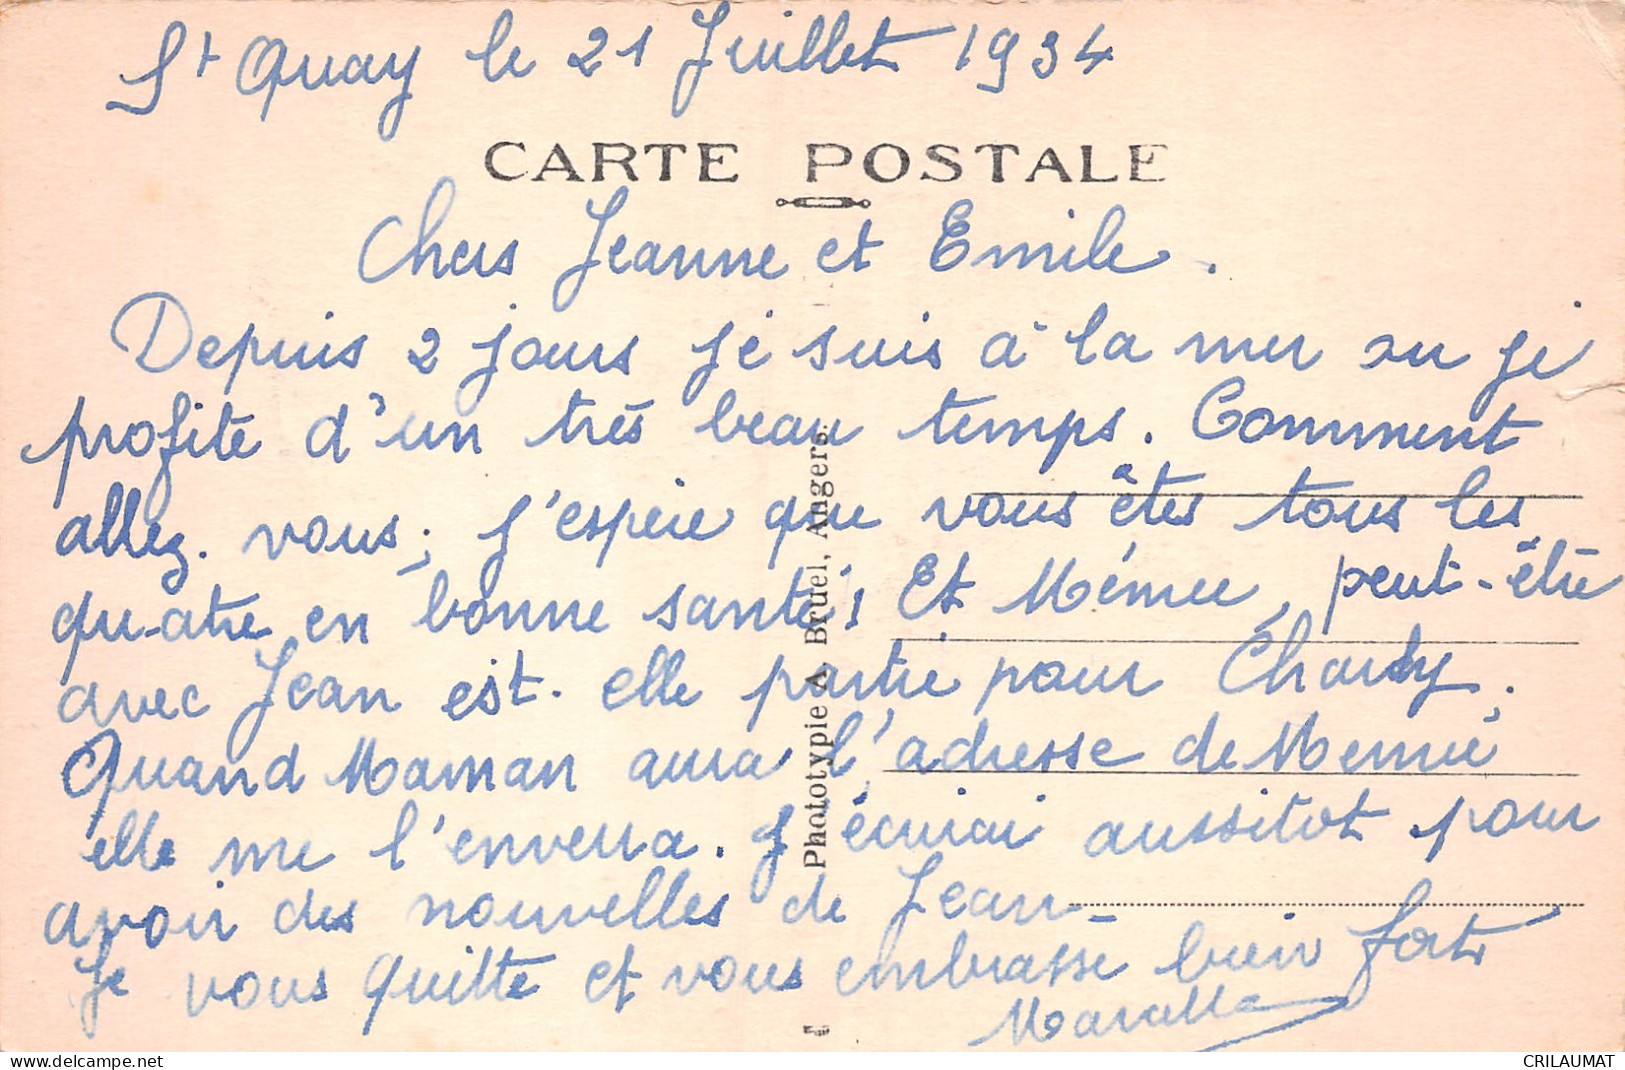 St Quay le 21 Juillet 1934
CARTE POSTALE
Chers Jeanne et Emile.
Depuis 2 jours je suis à la mer ou je
profite d'un très beau temps. Comment
allez. vous; J'espère que vous êtes tous les
quatre en bonne santé! Et Mémée, peut-être
avec Jean est. elle partie pour
Quand Maman aura l'adresse de Memée
elle me l'enverra. J'écrirai aussitot pour
avoir des nouvelles de Jean_
Je vous quitte et vous embrasse bien fort
Phototypie A. Bruel, Angers.
www.delcampe.net
CRILAUMAT